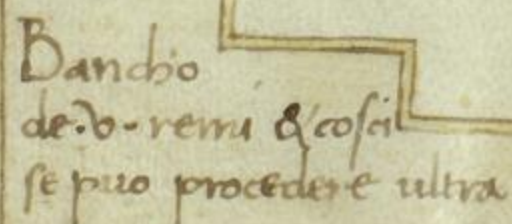 Bancho
de·v·remi & cosci
se puo procedere ultra